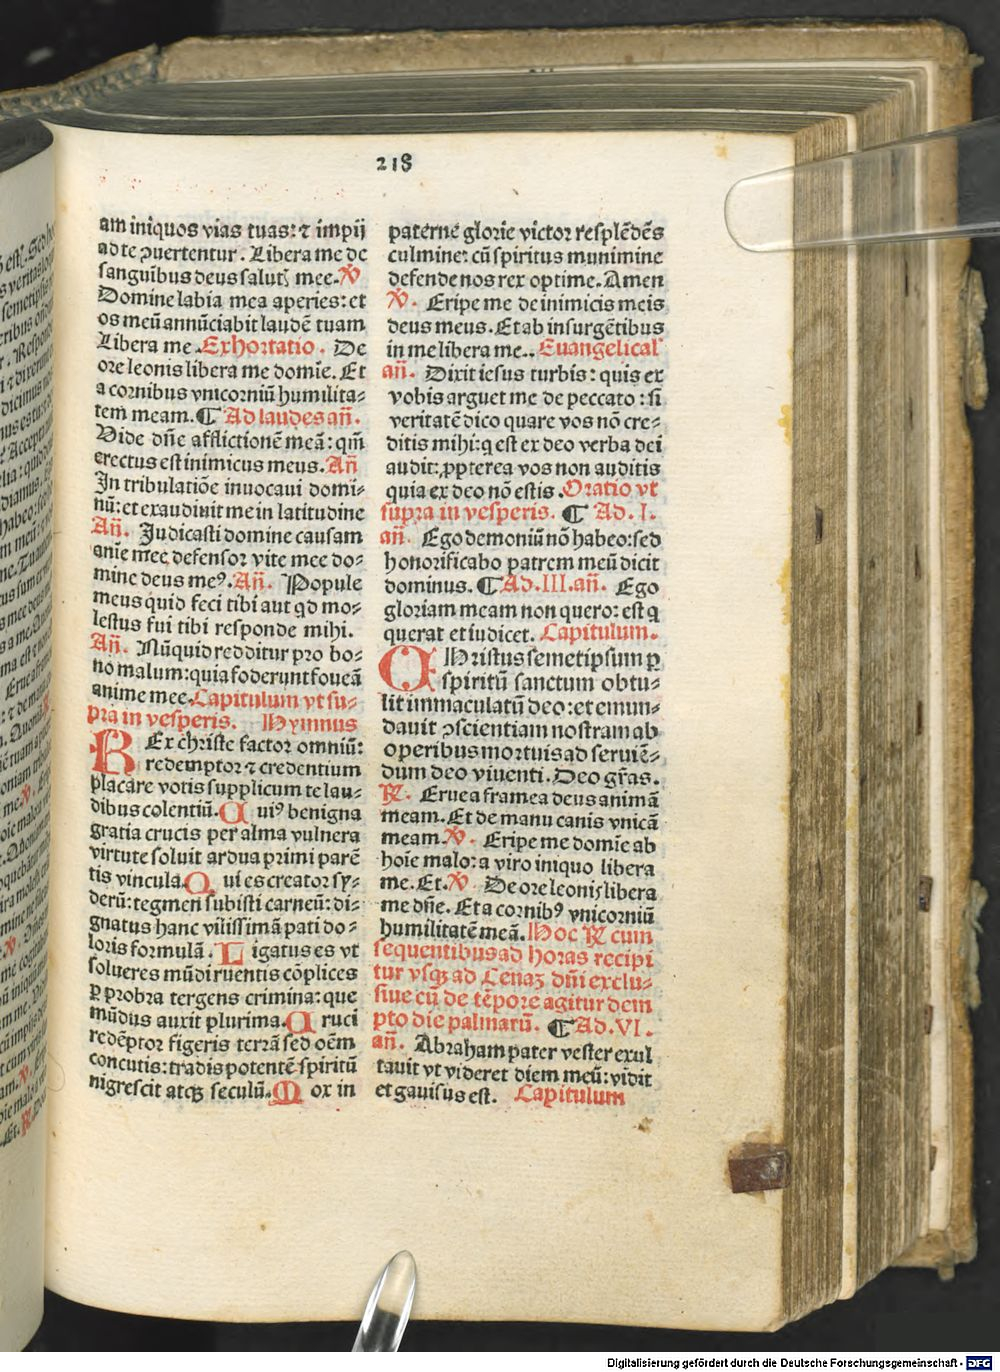 218
am iniquos vias tuas: ⁊ impij
ad te ꝯuertentur. Libera me de
sanguibus deus salutꝭ mee. ℣
Domine labia mea aperies: et
os meū annūciabit laudē tuam
Libera me. Exhortatio. De
ore leonis libera me domīe. Et
a cornibus vnicorniū humilita⸗
tem meam. ¶ Ad laudes añ.
Vide dñe afflictionē meā: qm̄
erectus est inimicus meus. Añ
In tribulatiōe inuocaui domi⸗
nū: et exaudiuit me in latitudine
Añ. Judicasti domine causam
anīe mee defensor vite mee do⸗
mine deus meꝰ. Añ. Popule
meus quid feci tibi aut qd mo⸗
lestus fui tibi responde mihi.
Añ. Nūquid redditur pro bo⸗
no malum: quia foderunt foueā
anime mee. Capitulum vt su⸗
pra in vesperis. Hymnus
REx christe factor omniū:
redemptor ⁊ credentium
placare votis supplicum te lau⸗
dibus colentiū. Cuiꝰ benigna
gratia crucis per alma vulnera
virtute soluit ardua primi parē
tis vincula. Qui es creator sy⸗
derū: tegmen subisti carneū: di⸗
gnatus hanc vilissimā pati do⸗
loris formulā. Ligatus es vt
solueres mūdi ruentis cōplices
ꝑ probra tergens crimina: que
mūdus auxit plurima. Cruci
redēptor figeris terrā sed oēm
concutis: tradis potentē spiritū
nigrescit atqꝫ seculū. Mox in
paterne glorie victor resplēdēs
culmine: cū spiritus munimine
defende nos rex optime. Amen
℣. Eripe me de inimicis meis
deus meus. Et ab insurgētibus
in me libera me.. Euangelical'
añ. Dixit iesus turbis: quis ex
vobis arguet me de peccato: si
veritatē dico quare vos nō cre⸗
ditis mihi: q est ex deo verba dei
audit: ꝓpterea vos non auditis
quia ex deo nō estis. Oratio vt
supra in vesperis. ¶ Ad. I.
añ. Ego demoniū nō habeo: sed
honorifico patrem meū dicit
dominus. ¶ Ad. III. añ. Ego
gloriam meam non quero: est q
querat et iudicet. Capitulum.
CHristus semetipsum ꝑ
spiritū sanctum obtu⸗
lit immaculatū deo: et emun⸗
dauit ꝯscientiam nostram ab
operibus mortuis ad seruiē⸗
dum deo viuenti. Deo gr̄as.
℟. Erue a framea deus animā
meam. Et de manu canis vnicā
meam. ℣. Eripe me domīe ab
hoīe malo: a viro iniquo libera
me. Et. ℣. De ore leonis libera
me dñe. Et a cornibꝰ vnicorniū
humilitatē meā. Hoc ℟ cum
sequentibus ad horas recipi
tur vsqꝫ ad Cenaꝫ dn̄i exclu⸗
siue cū de tēpore agitur dem
pto die palmarū. ¶ Ad. VI.
añ. Abraham pater vester exul
tauit vt videret diem meū: vidit
et gauisus est. Capitulum
Digitalisierung gefördert durch die Deutsche Forschungsgemeinschaft - DFG